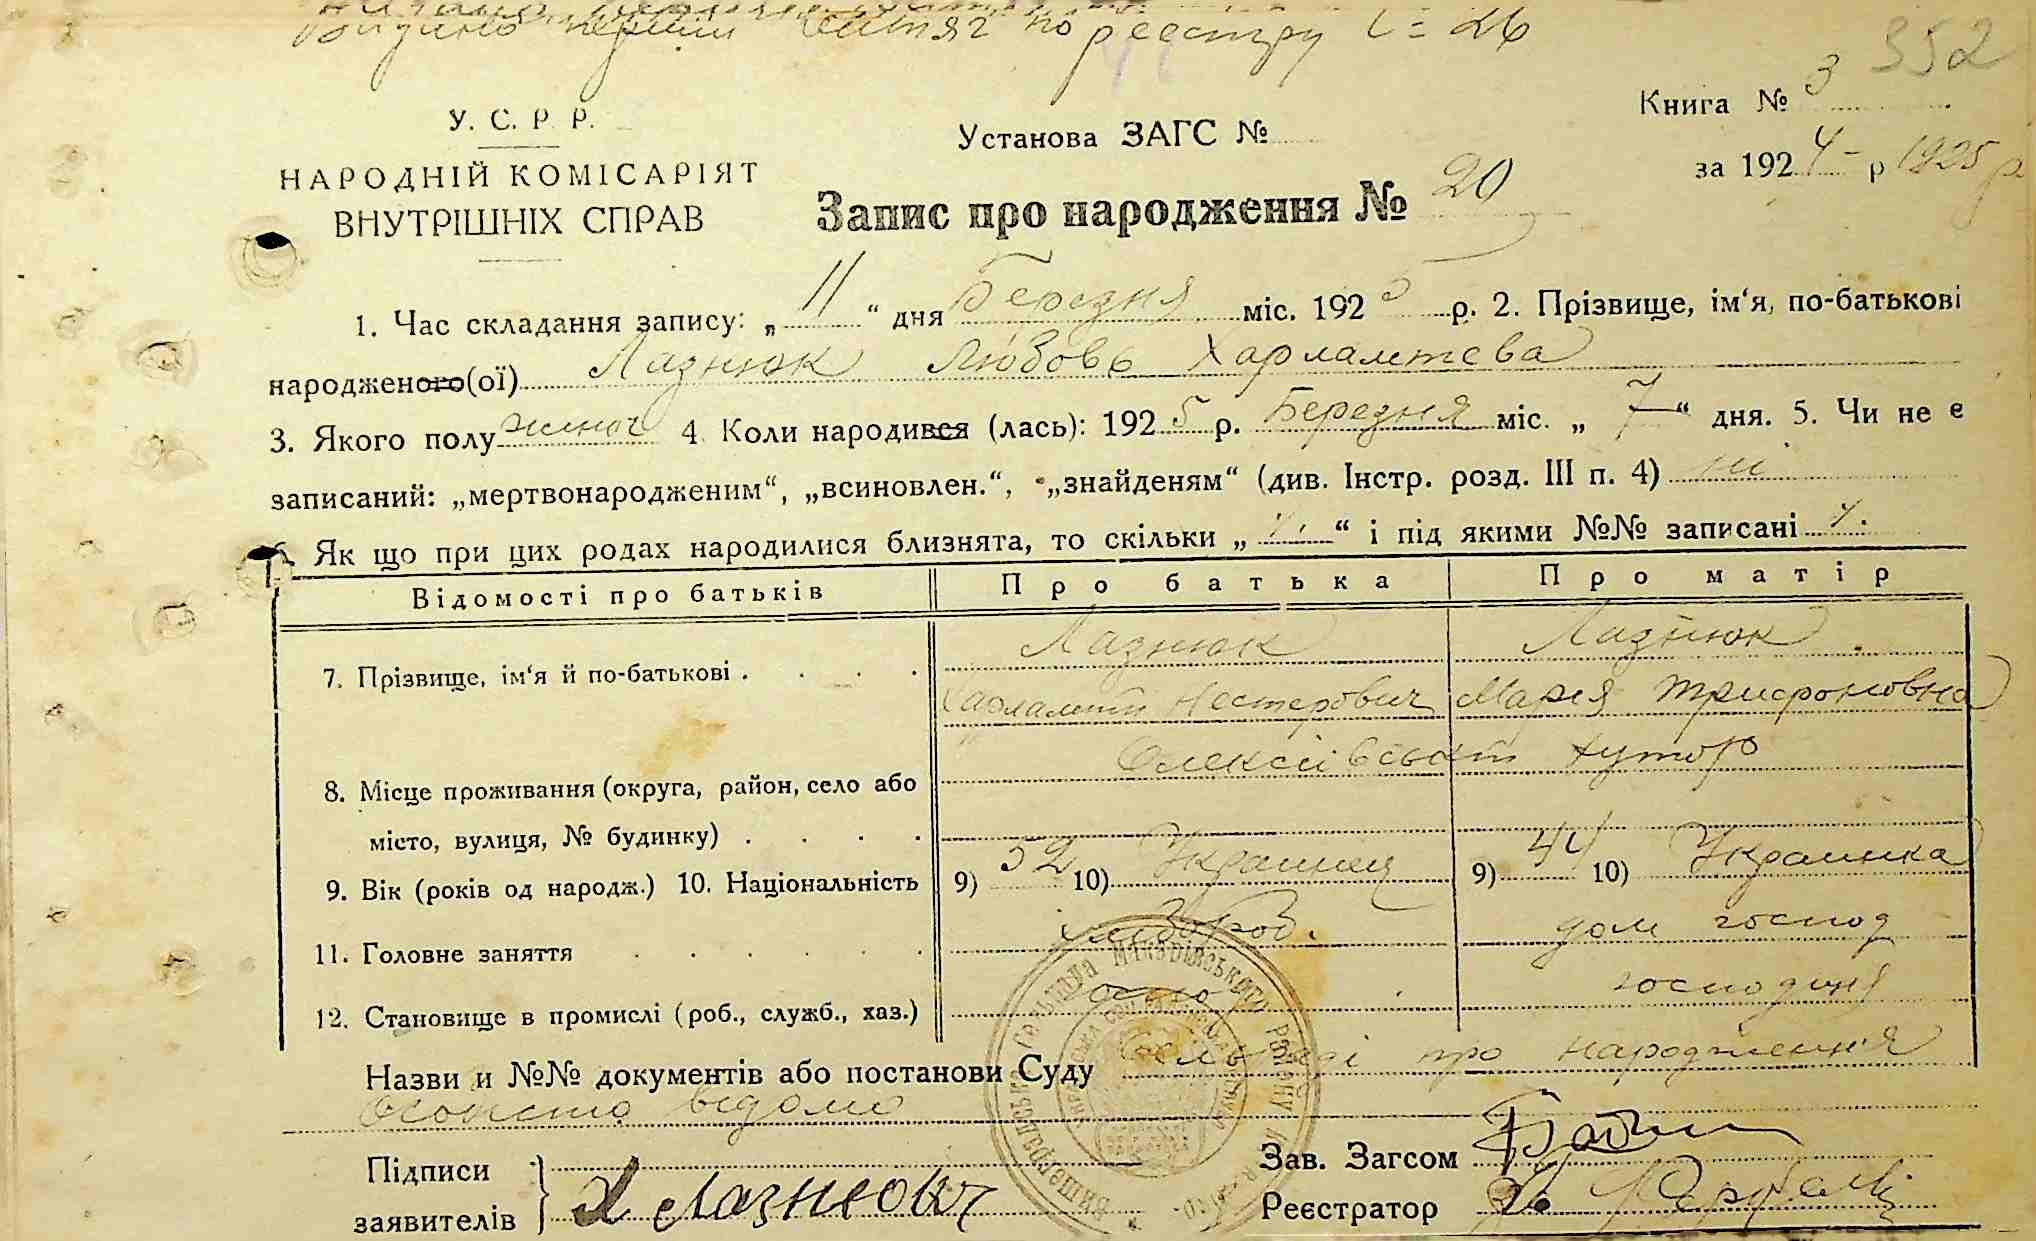 Видано перший витяг по реєстру 26
352
Книга № 3
У. С. Р. Р.
Установа ЗАГС №
за 1924 - р 1925 р
НАРОДНІЙ КОМІСАРІЯТ
ВНУТРІШНІХ СПРАВ
Запис про народження № 20
1. Час складання запису: „ 11 “ дня Березня міс. 1925 р. 2. Прізвище, ім‘я, по-батькові
народженого(ої) Лазнюк Любовь Харлампева
3. Якого полу жіноч 4. Коли народився (лась): 1925 р. Березня міс. „ 7 “ дня. 5. Чи не є
записаний: „мертвонародженим“, „всиновлен.“, „знайденям“ (див. Інстр. розд. III п. 4) ні
Як що при цих родах народилися близнята, то скільки „ “ і під якими №№ записані
Відомості про батьків Про батька Про матір
Лазнюк Лазнюк
7. Прізвище, ім‘я й по-батькові
Харлампій Нестерович Мария Трифоновна
Олексіївський хутор
8. Місце проживання (округа, район, село або
місто, вулиця, № будинку)
9. Вік (років од народж.) 10. Національність 9) 52 10) Украинец 9) 44 10) Украинка
хлібороб. дом господ
11. Головне заняття
господиня
12. Становище в промислі (роб., служб., хаз.)
Назви и №№ документів або постанови Суду про народження
Особисто відомо
Підписи
заявителів Х Лазнюк
Зав. Загсом
Реєстратор